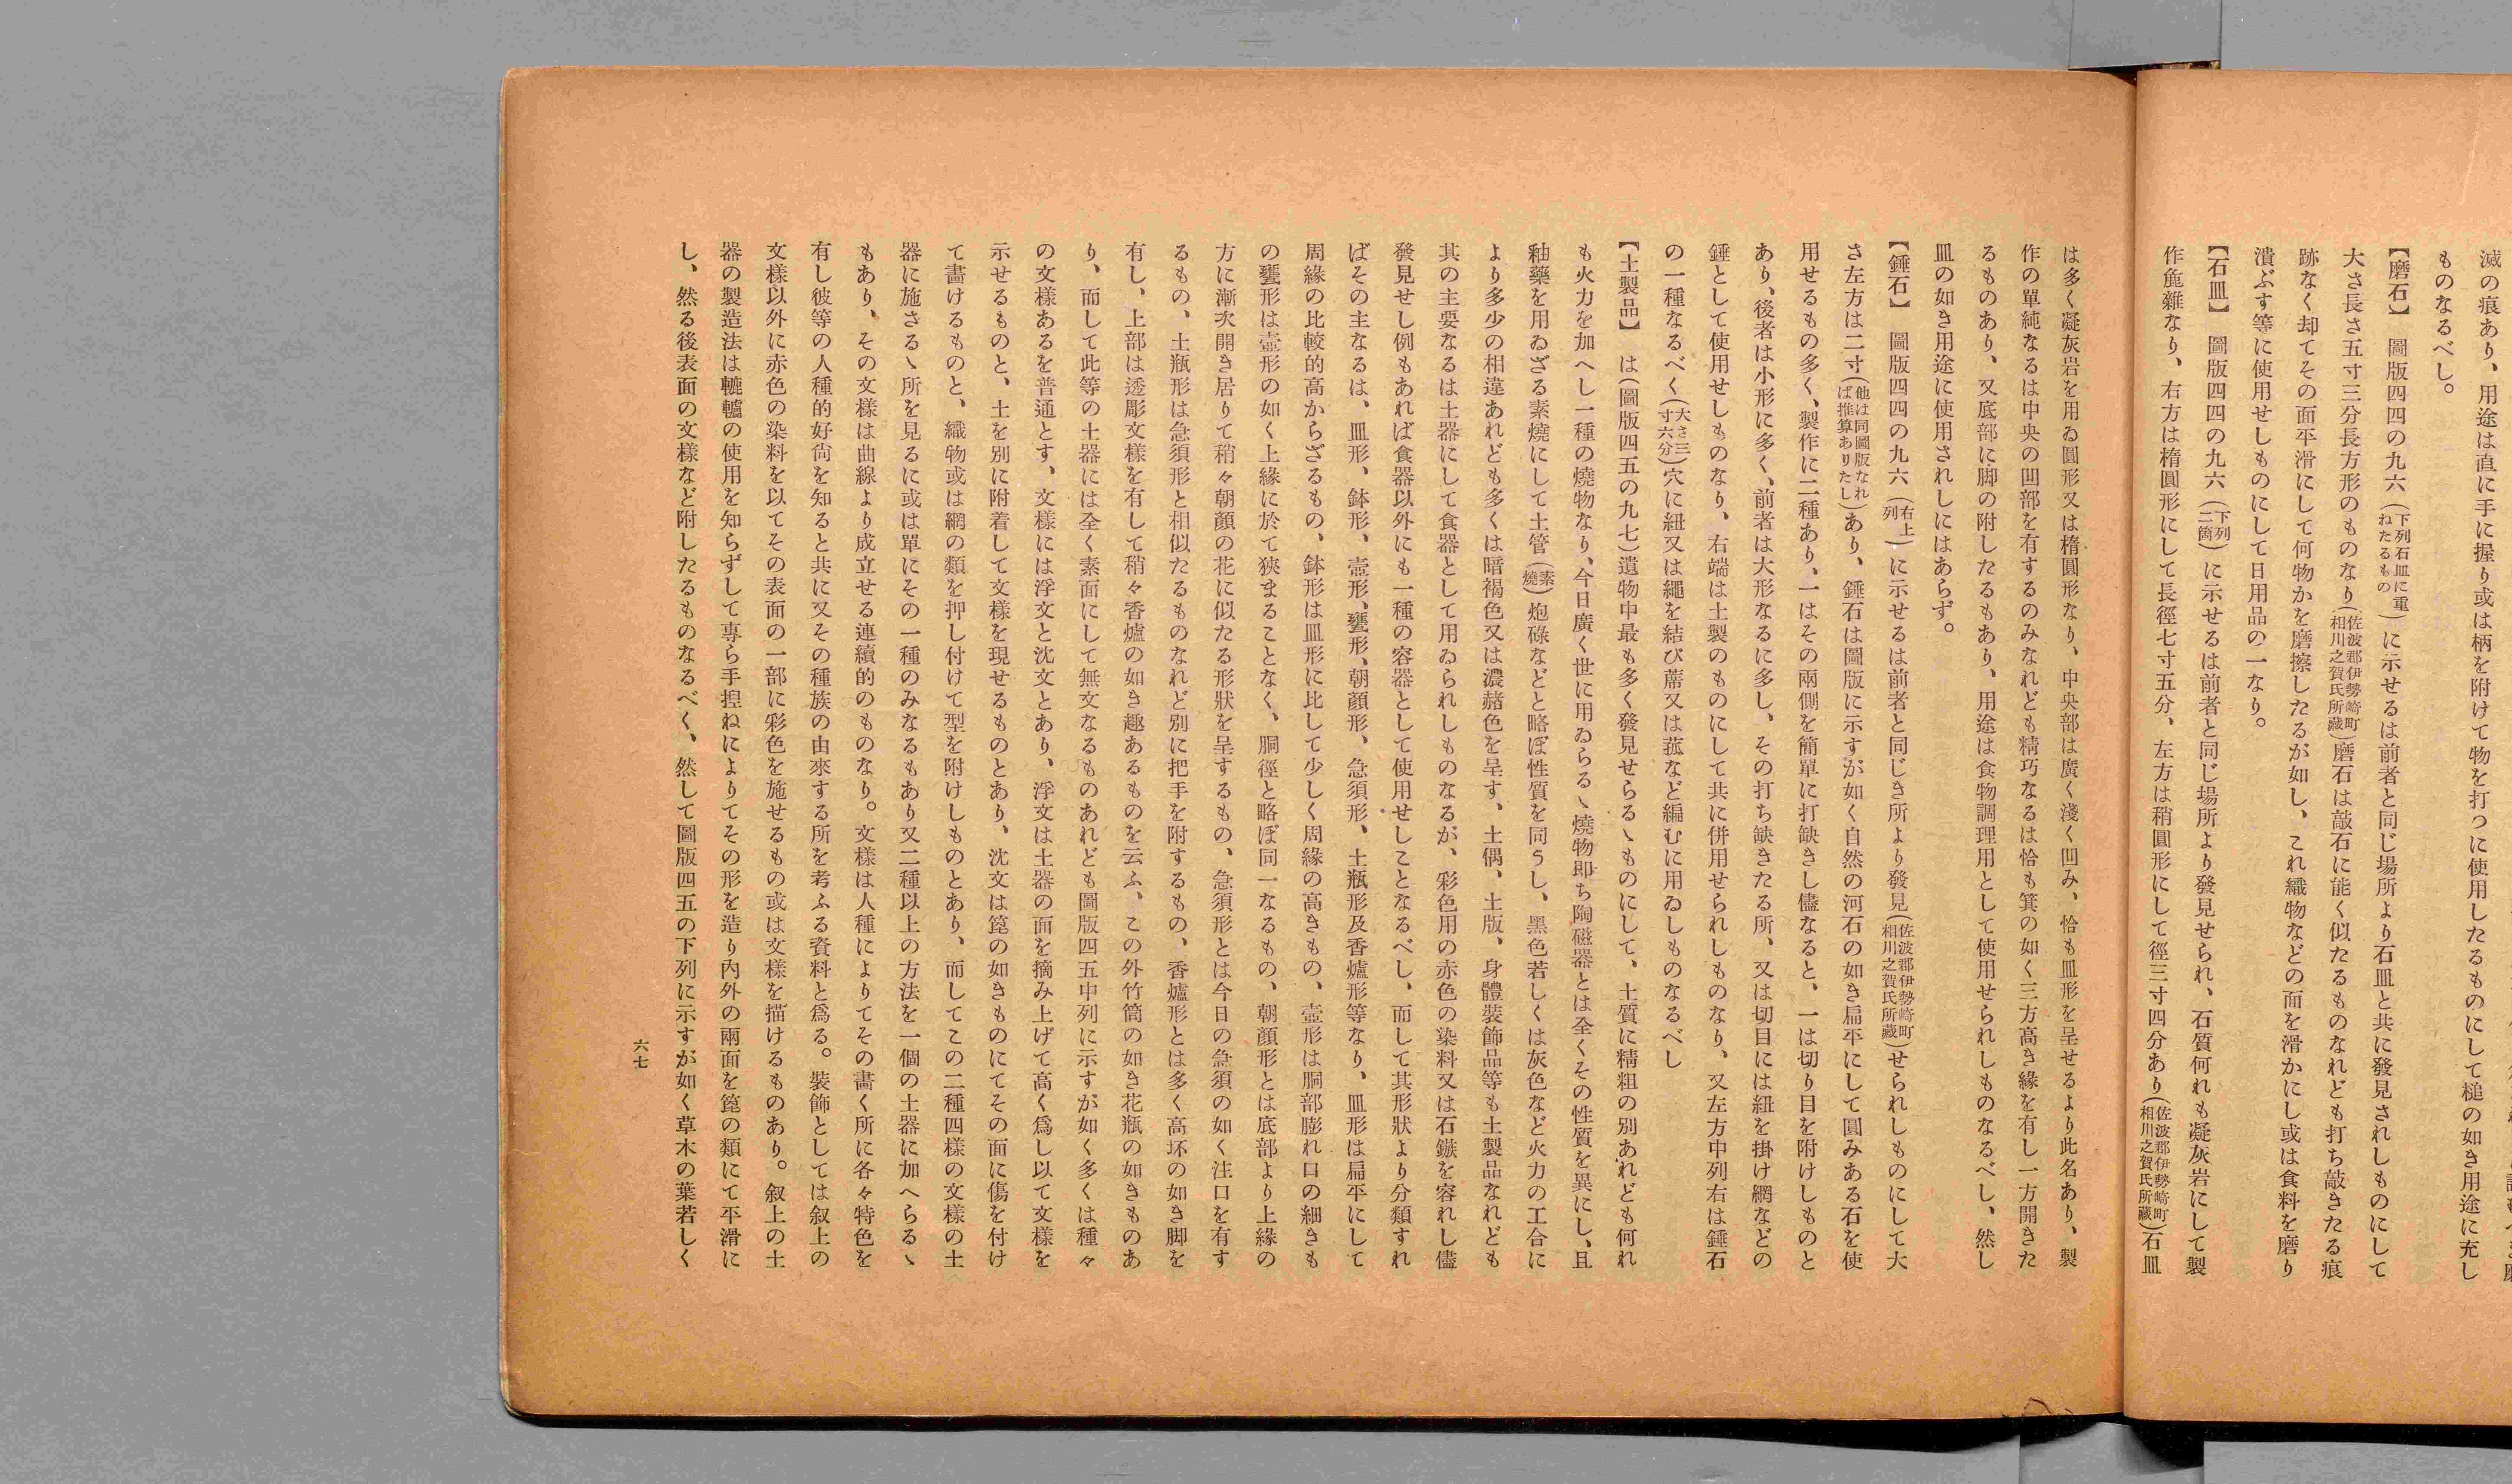 滅の痕あり、用途は直に手に握り或は柄を附けて物を打つに使用したるものにして槌の如き用途に充し
ものなるべし。
【磨石】 圖版四四の九六(下列石皿に重ねたるもの)に示せるは前者と同じ場所より石皿と共に發見されしものにして
大さ長さ五寸三分長方形のものなり(佐波郡伊勢崎町相川之賀氏所藏)磨石は敲石に能く似たるものなれども打ち敲きたる痕
跡なく却てその面平滑にして何物かを磨擦したるが如し、これ織物などの面を滑かにし或は食料を磨り
潰ぶす等に使用せしものにして日用品の一なり。
【石皿】 圖版四四の九六(下列二箇)に示せるは前者と同じ場所より發見せられ、石質何れも凝灰岩にして製
作麁雜なり、右方は楕圓形にして長徑七寸五分、左方は稍圓形にして徑三寸四分あり(佐波郡伊勢崎町相川之賀氏所藏)石皿
は多く凝灰岩を用ゐ圓形又は楕圓形なり、中央部は廣く淺く凹み、恰も皿形を呈せるより此名あり、製
作の單純なるは中央の凹部を有するのみなれども精巧なるは恰も箕の如く三方高き緣を有し一方開きた
るものあり、又底部に脚の附したるもあり、用途は食物調理用として使用せられしものなるべし、然し
皿の如き用途に使用されしにはあらず。
【錘石】 圖版四四の九六(右上列)に示せるは前者と同じき所より發見(佐波郡伊勢崎町相川之賀氏所藏)せられしものにして大
さ左方は二寸(他は同圖版なれば推算ありたし)あり、錘石は圖版に示すが如く自然の河石の如き扁平にして圓みある石を使
用せるもの多く、製作に二種あり、一はその兩側を簡單に打缺きし儘なると、一は切り目を附けしものと
あり、後者は小形に多く、前者は大形なるに多し、その打ち缺きたる所、又は切目には紐を掛け網などの
錘として使用せしものなり、右端は土製のものにして共に併用せられしものなり、又左方中列右は錘石
の一種なるべく(大さ三寸六分)穴に紐又は繩を結び蓆又は菰など編むに用ゐしものなるべし
【土製品】 は(圖版四五の九七)遺物中最も多く發見せらるヽものにして、土質に精粗の別あれども何れ
も火力を加へし一種の燒物なり、今日廣く世に用ゐらるヽ燒物即ち陶磁器とは全くその性質を異にし、且
釉藥を用ゐざる素燒にして土管(素燒)炮碌などと略ぼ性質を同うし、黑色若しくは灰色など火力の工合に
より多少の相違あれども多くは暗褐色又は濃赭色を呈す、土偶、土版、身體裝飾品等も土製品なれども
其の主要なるは土器にして食器として用ゐられしものなるが、彩色用の赤色の染料又は石鏃を容れし儘
發見せし例もあれば食器以外にも一種の容器として使用せしことなるべし、而して其形狀より分類すれ
ばその主なるは、皿形、鉢形、壼形、甕形、朝顏形、急須形、土瓶形及香爐形等なり、皿形は扁平にして
周緣の比較的高からざるもの、鉢形は皿形に比して少しく周緣の高きもの、壼形は胴部膨れ口の細きも
の甕形は壼形の如く上緣に於て狹まることなく、胴徑と略ぼ同一なるもの、朝顏形とは底部より上緣の
方に漸次開き居りて稍々朝顏の花に似たる形狀を呈するもの、急須形とは今日の急須の如く注口を有す
るもの、土瓶形は急須形と相似たるものなれど別に把手を附するもの、香爐形とは多く高坏の如き脚を
有し、上部は透彫文樣を有して稍々香爐の如き趣あるものを云ふ、この外竹筒の如き花瓶の如きものあ
り、而して此等の土器には全く素面にして無文なるものあれども圖版四五中列に示すが如く多くは種々
の文樣あるを普通とす、文樣には浮文と沈文とあり、浮文は土器の面を摘み上げて高く爲し以て文樣を
示せるものと、土を別に附着して文樣を現せるものとあり、沈文は箆の如きものにてその面に傷を付け
て畵けるものと、織物或は網の類を押し付けて型を附けしものとあり、而してこの二種四樣の文樣の土
器に施さるヽ所を見るに或は單にその一種のみなるもあり又二種以上の方法を一個の土器に加へらるヽ
もあり、その文樣は曲線より成立せる連續的のものなり。文樣は人種によりてその畵く所に各々特色を
有し彼等の人種的好尙を知ると共に又その種族の由來する所を考ふる資料と爲る。裝飾としては叙上の
文樣以外に赤色の染料を以てその表面の一部に彩色を施せるもの或は文樣を描けるものあり。叙上の土
器の製造法は轆轤の使用を知らずして專ら手捏ねによりてその形を造り內外の兩面を箆の類にて平滑に
し、然る後表面の文樣など附したるものなるべく、然して圖版四五の下列に示すが如く草木の葉若しく
六七